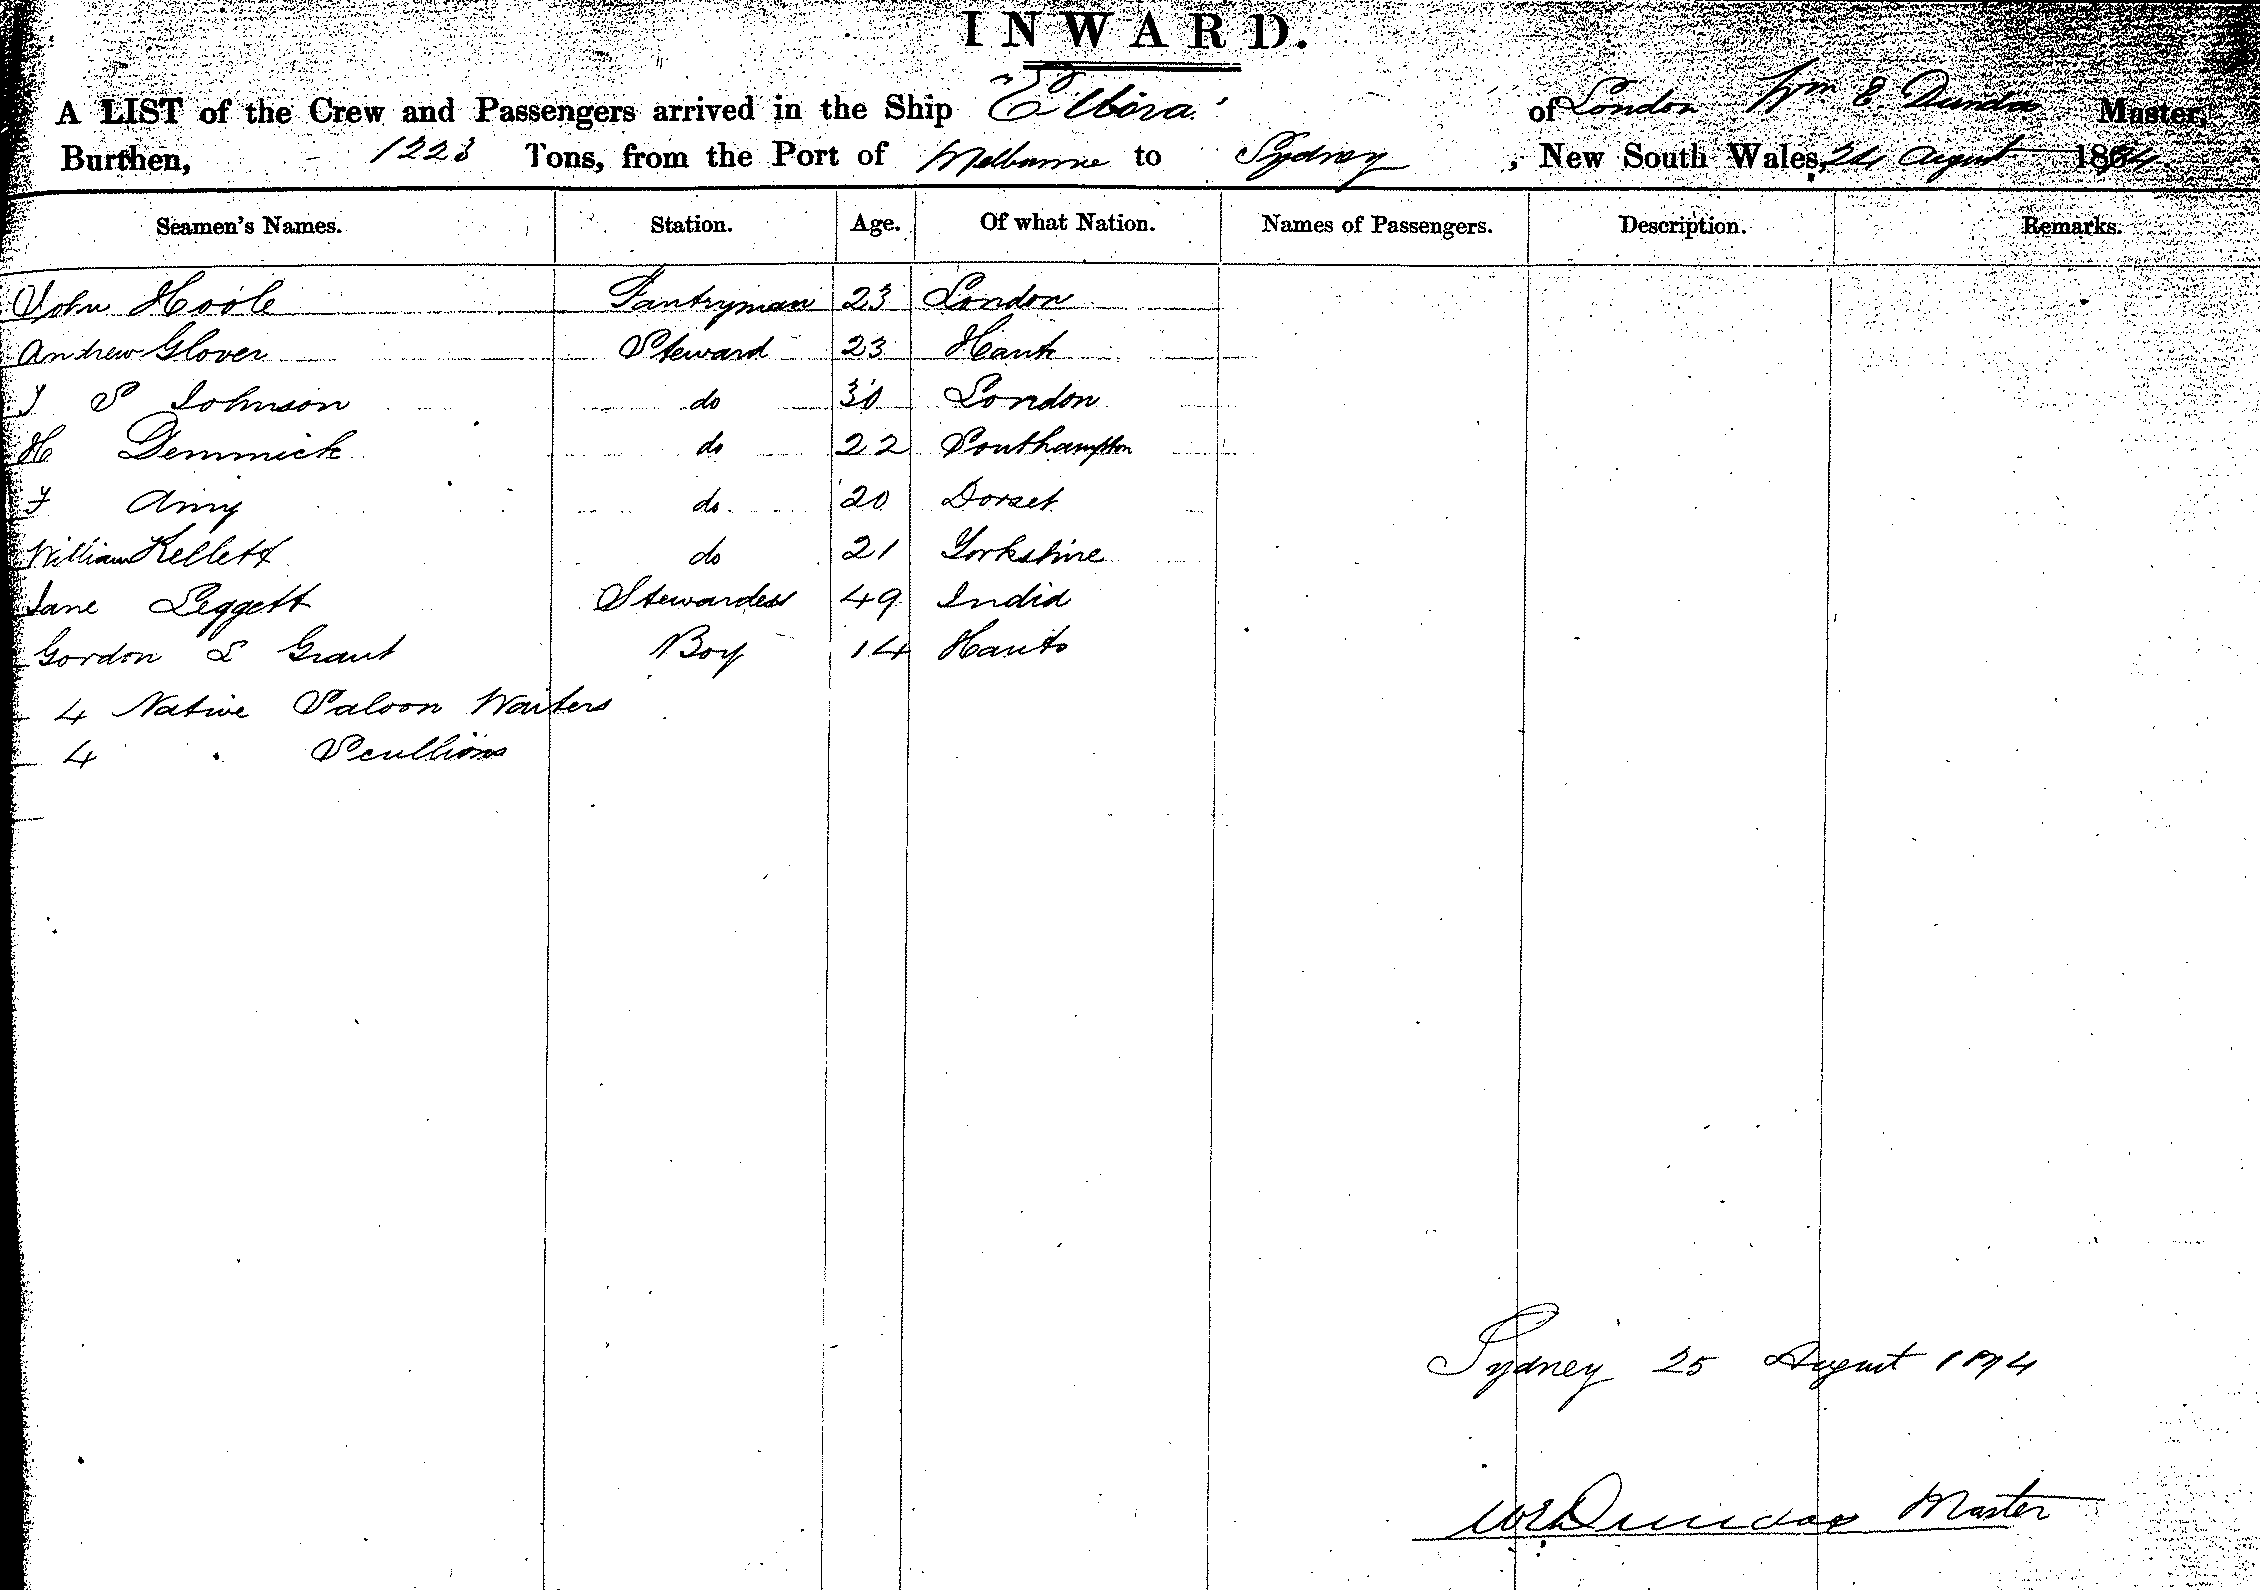 INWARD.
A LIST of the Crew and Passengers arrived in the Ship "Ellora" of London Wm E. Dundas Master,
Burthen, 1223 Tons, from the Port of Melbourne to Sydney, New South Wales, 24 August 1874
Seamen's Names. Station. Age. Of what Nation. Names of Passengers. Description. Remarks.
John Hoole Pantryman 23 London
Andrew Glover Steward 23 Hants
S Johnson do 30 London
H Demmick do 22 Southampton
F Amy do 20 Dorset
William Kellett do 21 Yorkshire
Jane Leggett Stewardess 49 India
Gordon L Grant Boy 14 Hants
4 Native Saloon Waiters
4 " Scullions
Sydney 25 August 1874
W E Dundas Master